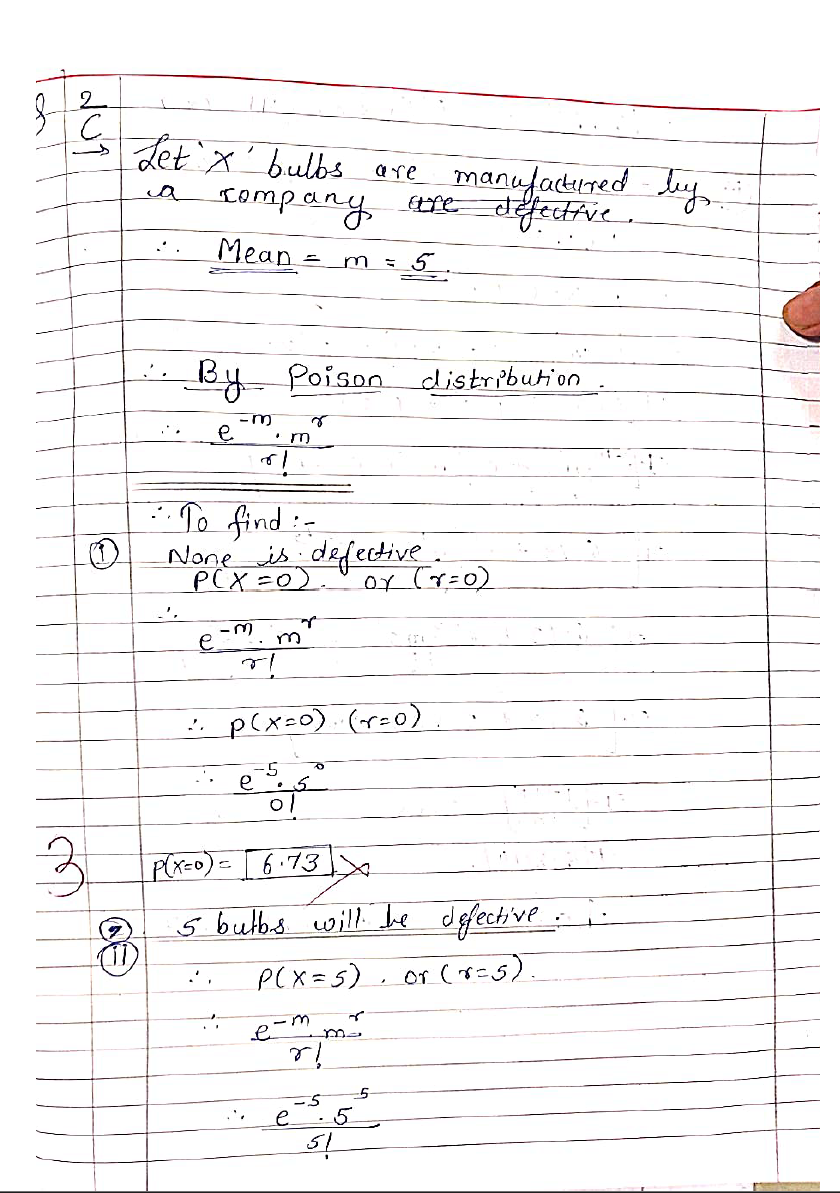 2
C
→ Let 'X' bulbs are manufactured by
a company are defective.
∴ Mean = m = 5.
∴ By Poison distribution.
∴ e^-m . m^r
r!
∴ To find :-
① None is defective.
P(X=0). or (r=0)
∴
e^-m . m^r
r!
∴ P(X=0) (r=0).
∴ e^-5 . 5^0
0!
3 P(X=0) = 6.73 ×
② 5 bulbs will be defective.
ii
∴ P(X=5). or (r=5).
∴ e^-m m^r
r!
∴ e^-5 . 5^5
5!